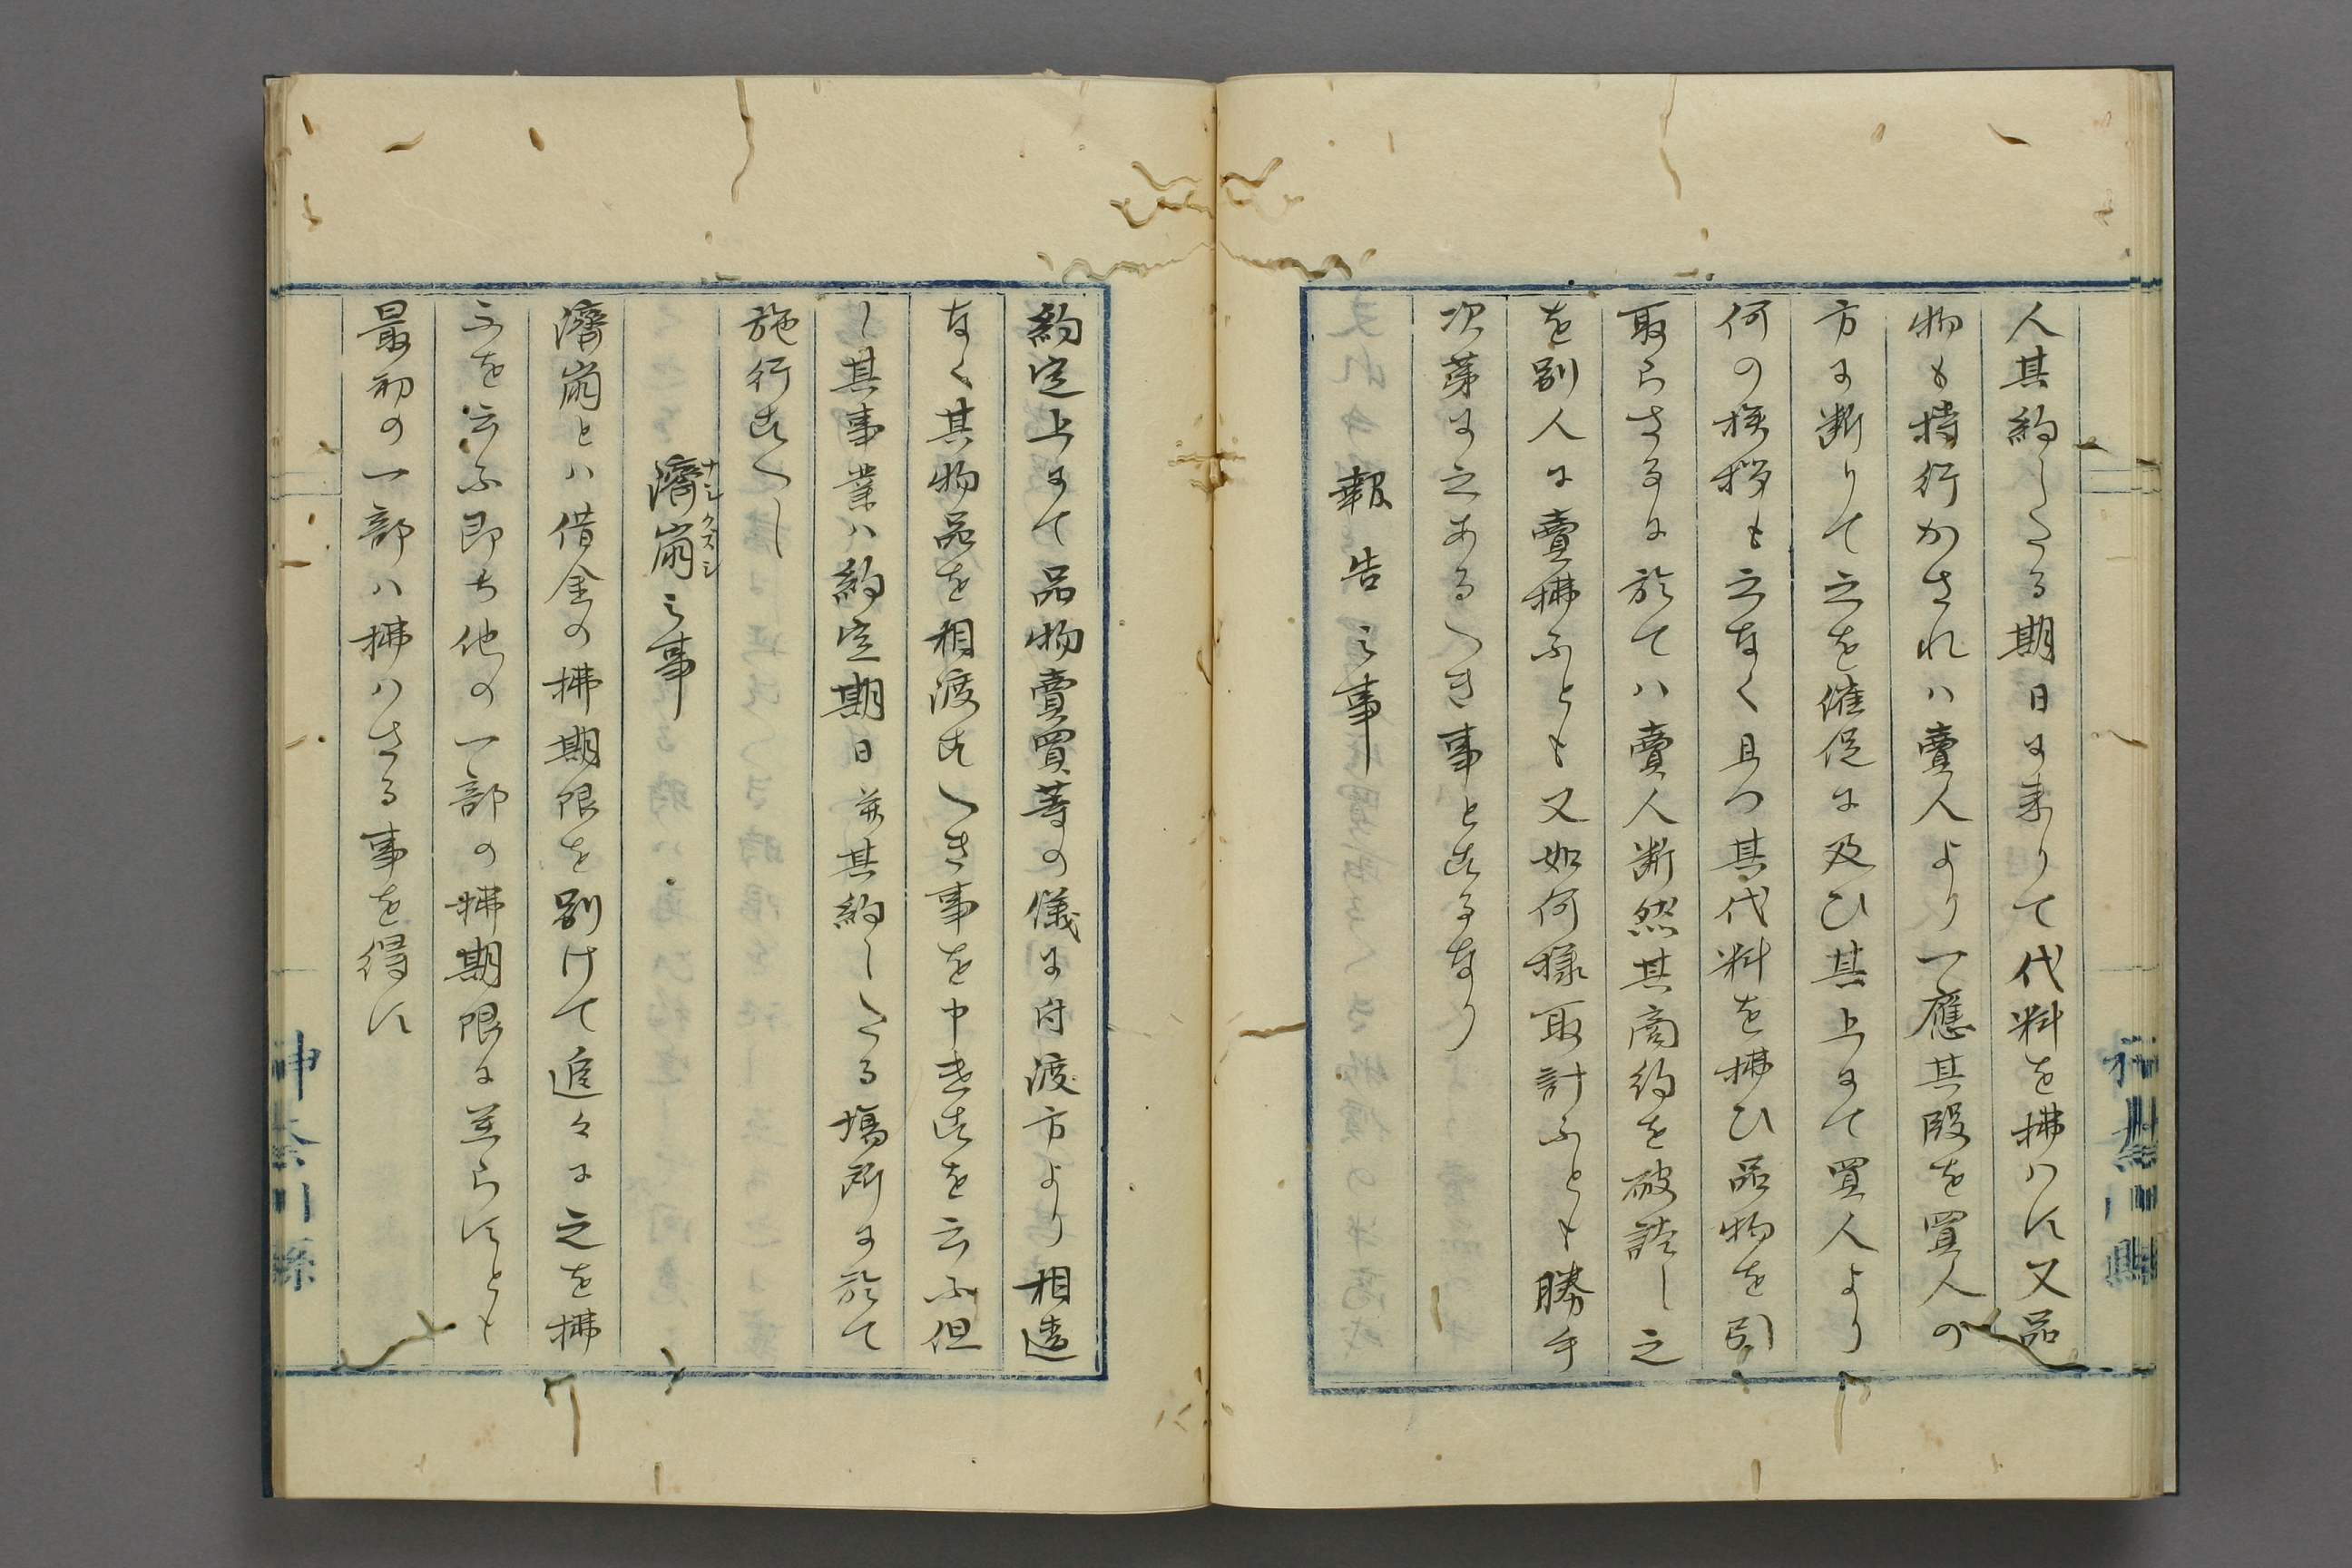 人其約したる期日に来りて代料を拂ハす又品
物も持行かされハ賣人より一應其段を買人の
方に断りて之を催促に及ひ其上にて買人より
何の挨拶も之なく且つ其代料を拂ひ品物を引
取らさるに於てハ賣人断然其商約を破談し之
を別人に賣拂ふとも又如何様取計ふとも勝手
次第に之あるへき事とするなり
報告之事
約定上にて品物賣買等の儀に付渡方より相違
なく其物品を相渡すへき事を申送すを云ふ但
し其事業ハ約定期日并其約したる塲所に於て
施行すへし
濟崩之事
ナシクスシ
濟崩とハ借金の拂期限を別けて追々に之を拂
ふを云ふ即ち他の一部の拂期限に至らすとも
最初の一部ハ拂ハさる事を得す
神奈川縣